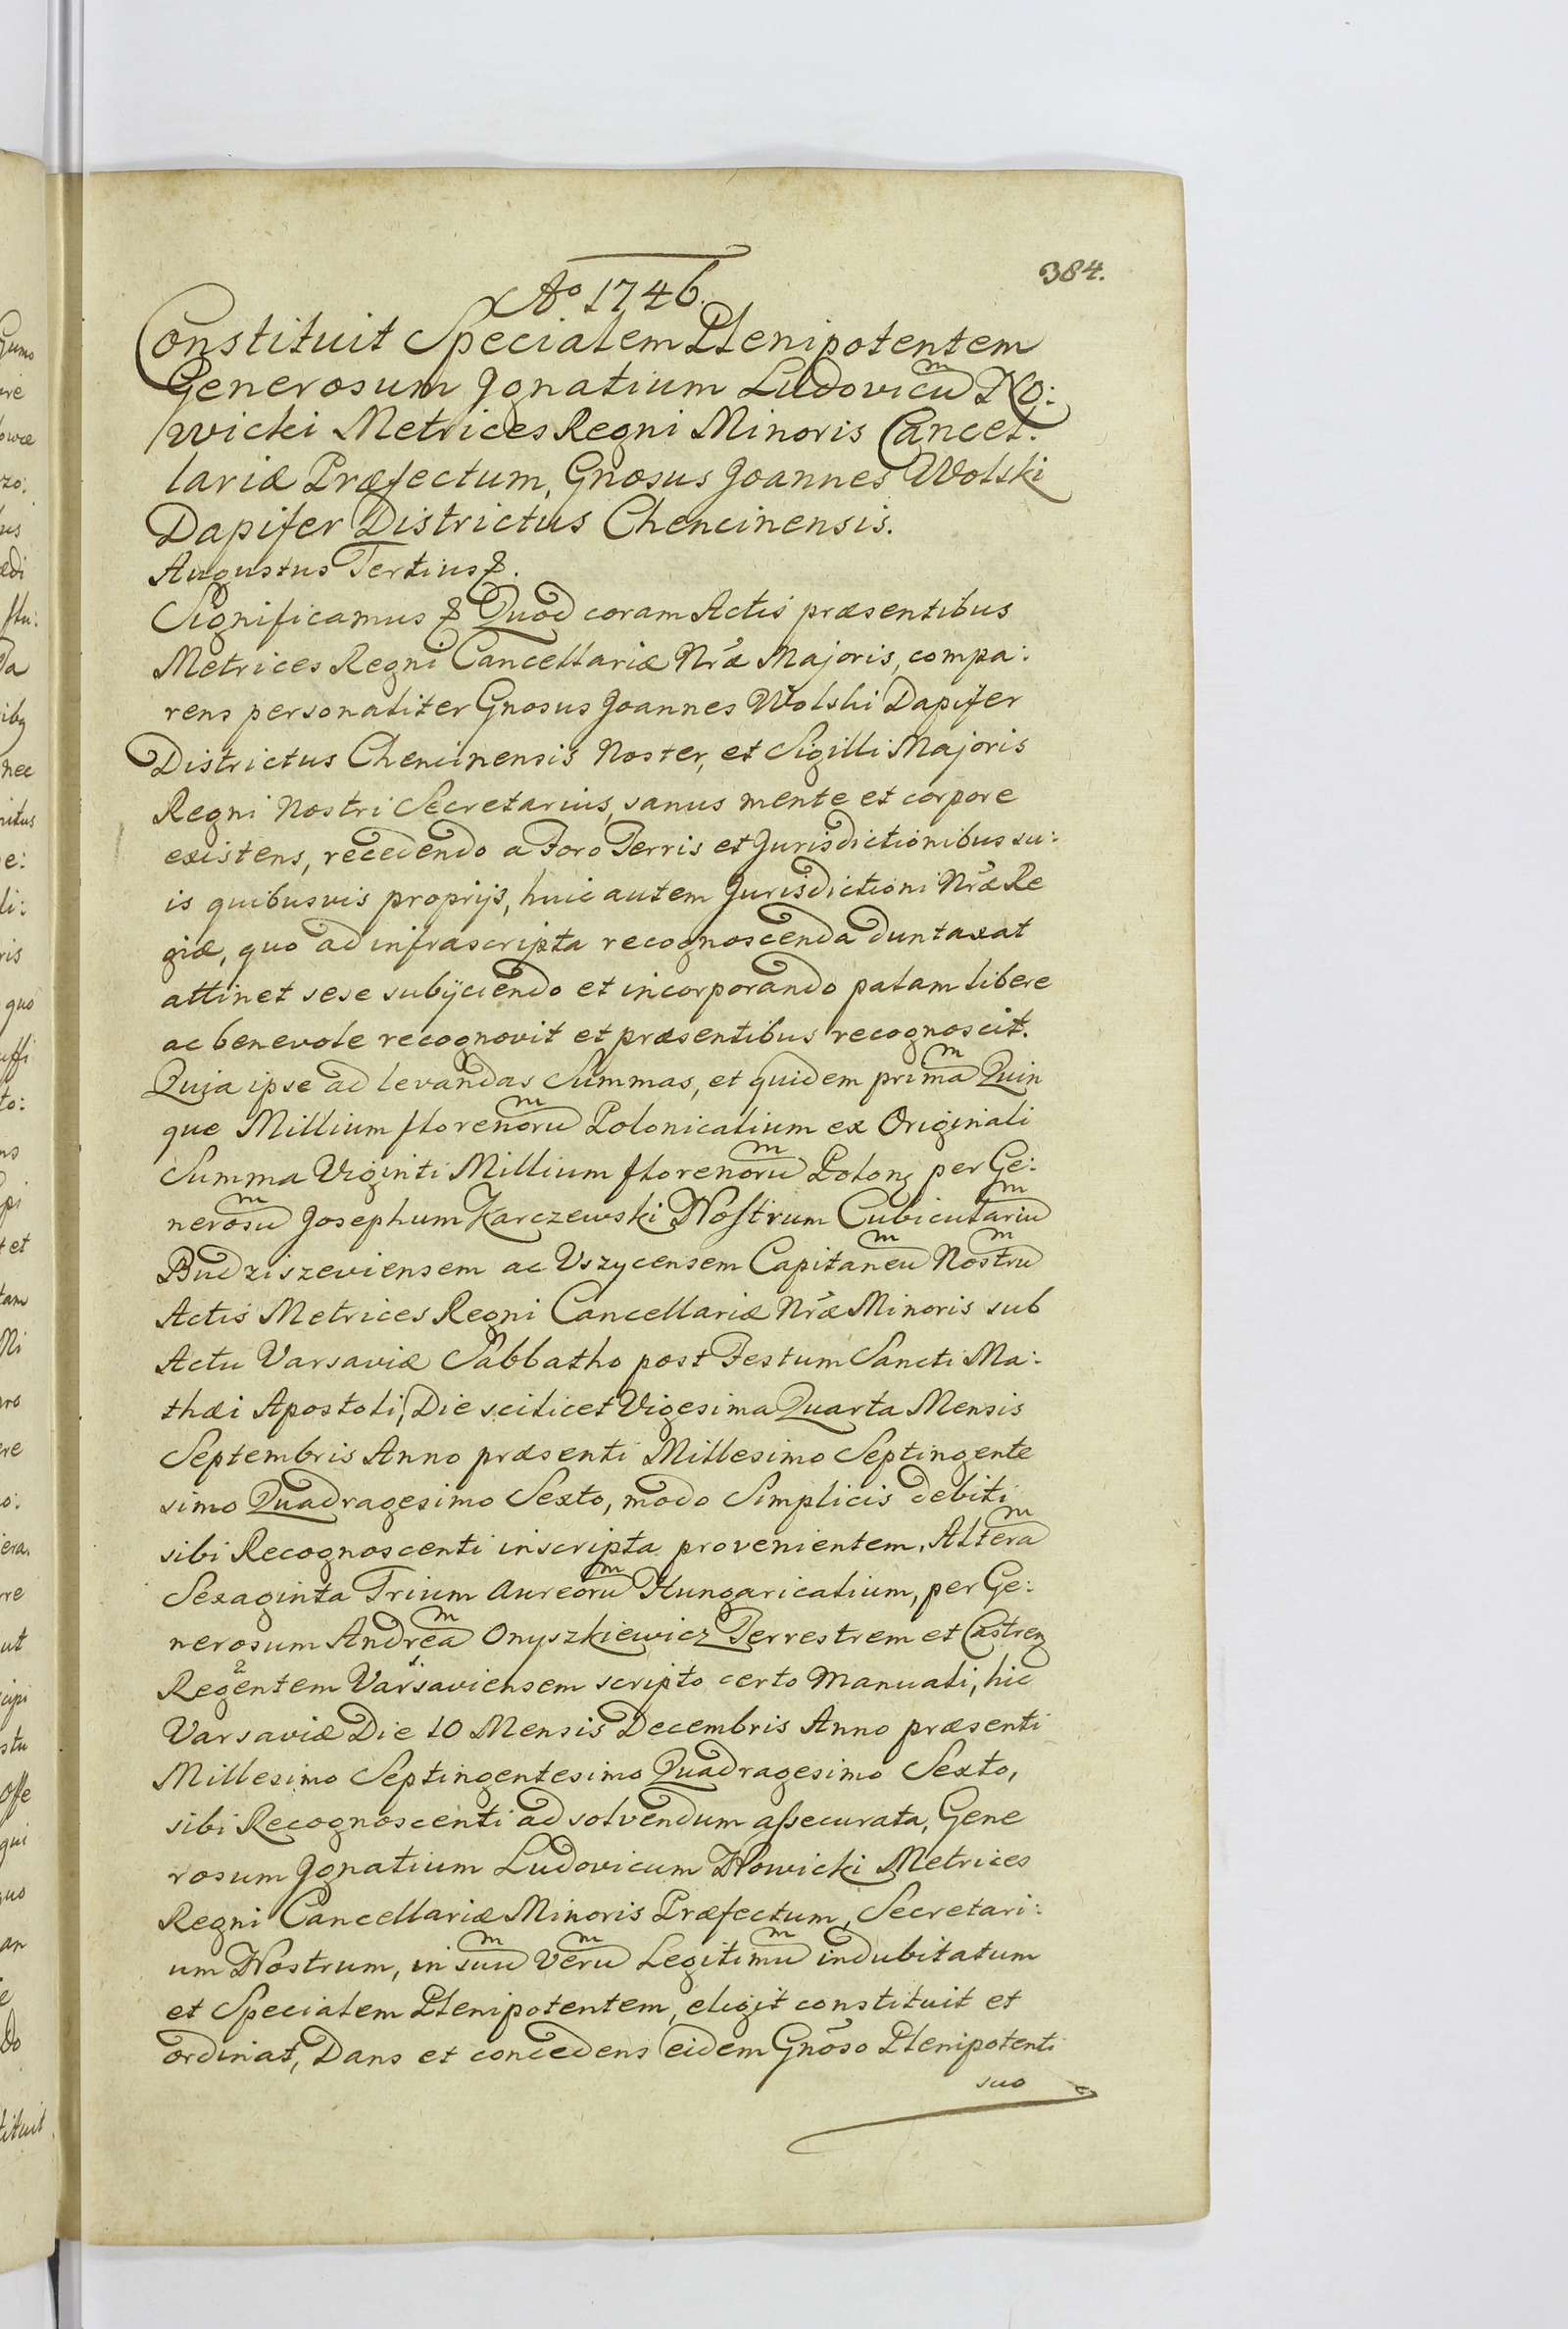 384.
Ao 1746.
Constituit Specialem Plenipotentem
Generosum Ignatium Ludovicum No:
wicki Metrices Regni Minoris Cancel:
lariæ Præfectum, Gnosus Joannes Wolski
Dapifer Districtus Chencinensis.
Augustus Tertius &.
Significamus & Quod coram Actis præsentibus
Metrices Regni Cancellariæ Nræ Majoris, compa:
rens personaliter Gnosus Joannes Wolski Dapifer
Districtus Chencinensis Noster, et Sigilli Majoris
Regni Nostri Secretarius, sanus mente et corpore
existens, recedendo a Foro Terris et Jurisdictionibus su:
is quibusvis proprijs, huic autem Jurisdictioni Nræ Re
giæ, quo ad infrascripta recognoscenda duntaxat
attinet sese subijciendo et incorporando palam libere
ac benevole recognovit et præsentibus recognoscit.
Quia ipse ad levandas Summas, et quidem primam Quin
que Millium florenorum Polonicalium ex Originali
Summa Viginti Millium florenorum Polonz per Ge:
nerosum Josephum Karczewski Nostrum Cubicularium
Budziszeviensem ac Uszycensem Capitaneum Nostrum
Actis Metrices Regni Cancellariæ Nræ Minoris sub
Actu Varsaviæ Sabbatho post Festum Sancti Ma:
thæi Apostoli, Die scilicet Vigesima Quarta Mensis
Septembris Anno præsenti Millesimo Septingente
simo Quadragesimo Sexto, modo Simplicis debiti
sibi Recognoscenti inscripta provenientem, Alteram
Sexaginta Trium Aureorum Hungaricalium, per Ge:
nerosum Andream Onyszkiewicz Terrestrem et Castrenz
Regentem Varsaviensem scripto certo Manuali, hic
Varsaviæ Die 10 Mensis Decembris Anno præsenti
Millesimo Septingentesimo Quadragesimo Sexto,
sibi Recognoscenti ad solvendum assecurata, Gene
rosum Ignatium Ludovicum Nowicki Metrices
Regni Cancellariæ Minoris Præfectum, Secretari:
um Nostrum, in suum Verum Legitimum indubitatum
et Specialem Plenipotentem, eligit constituit et
ordinat, Dans et concedens eidem Gnoso Plenipotenti
suo